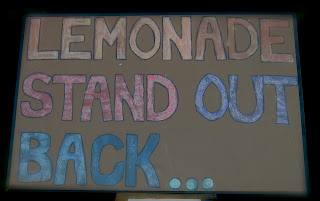 LEMONADE
STAND OUT
BACK...